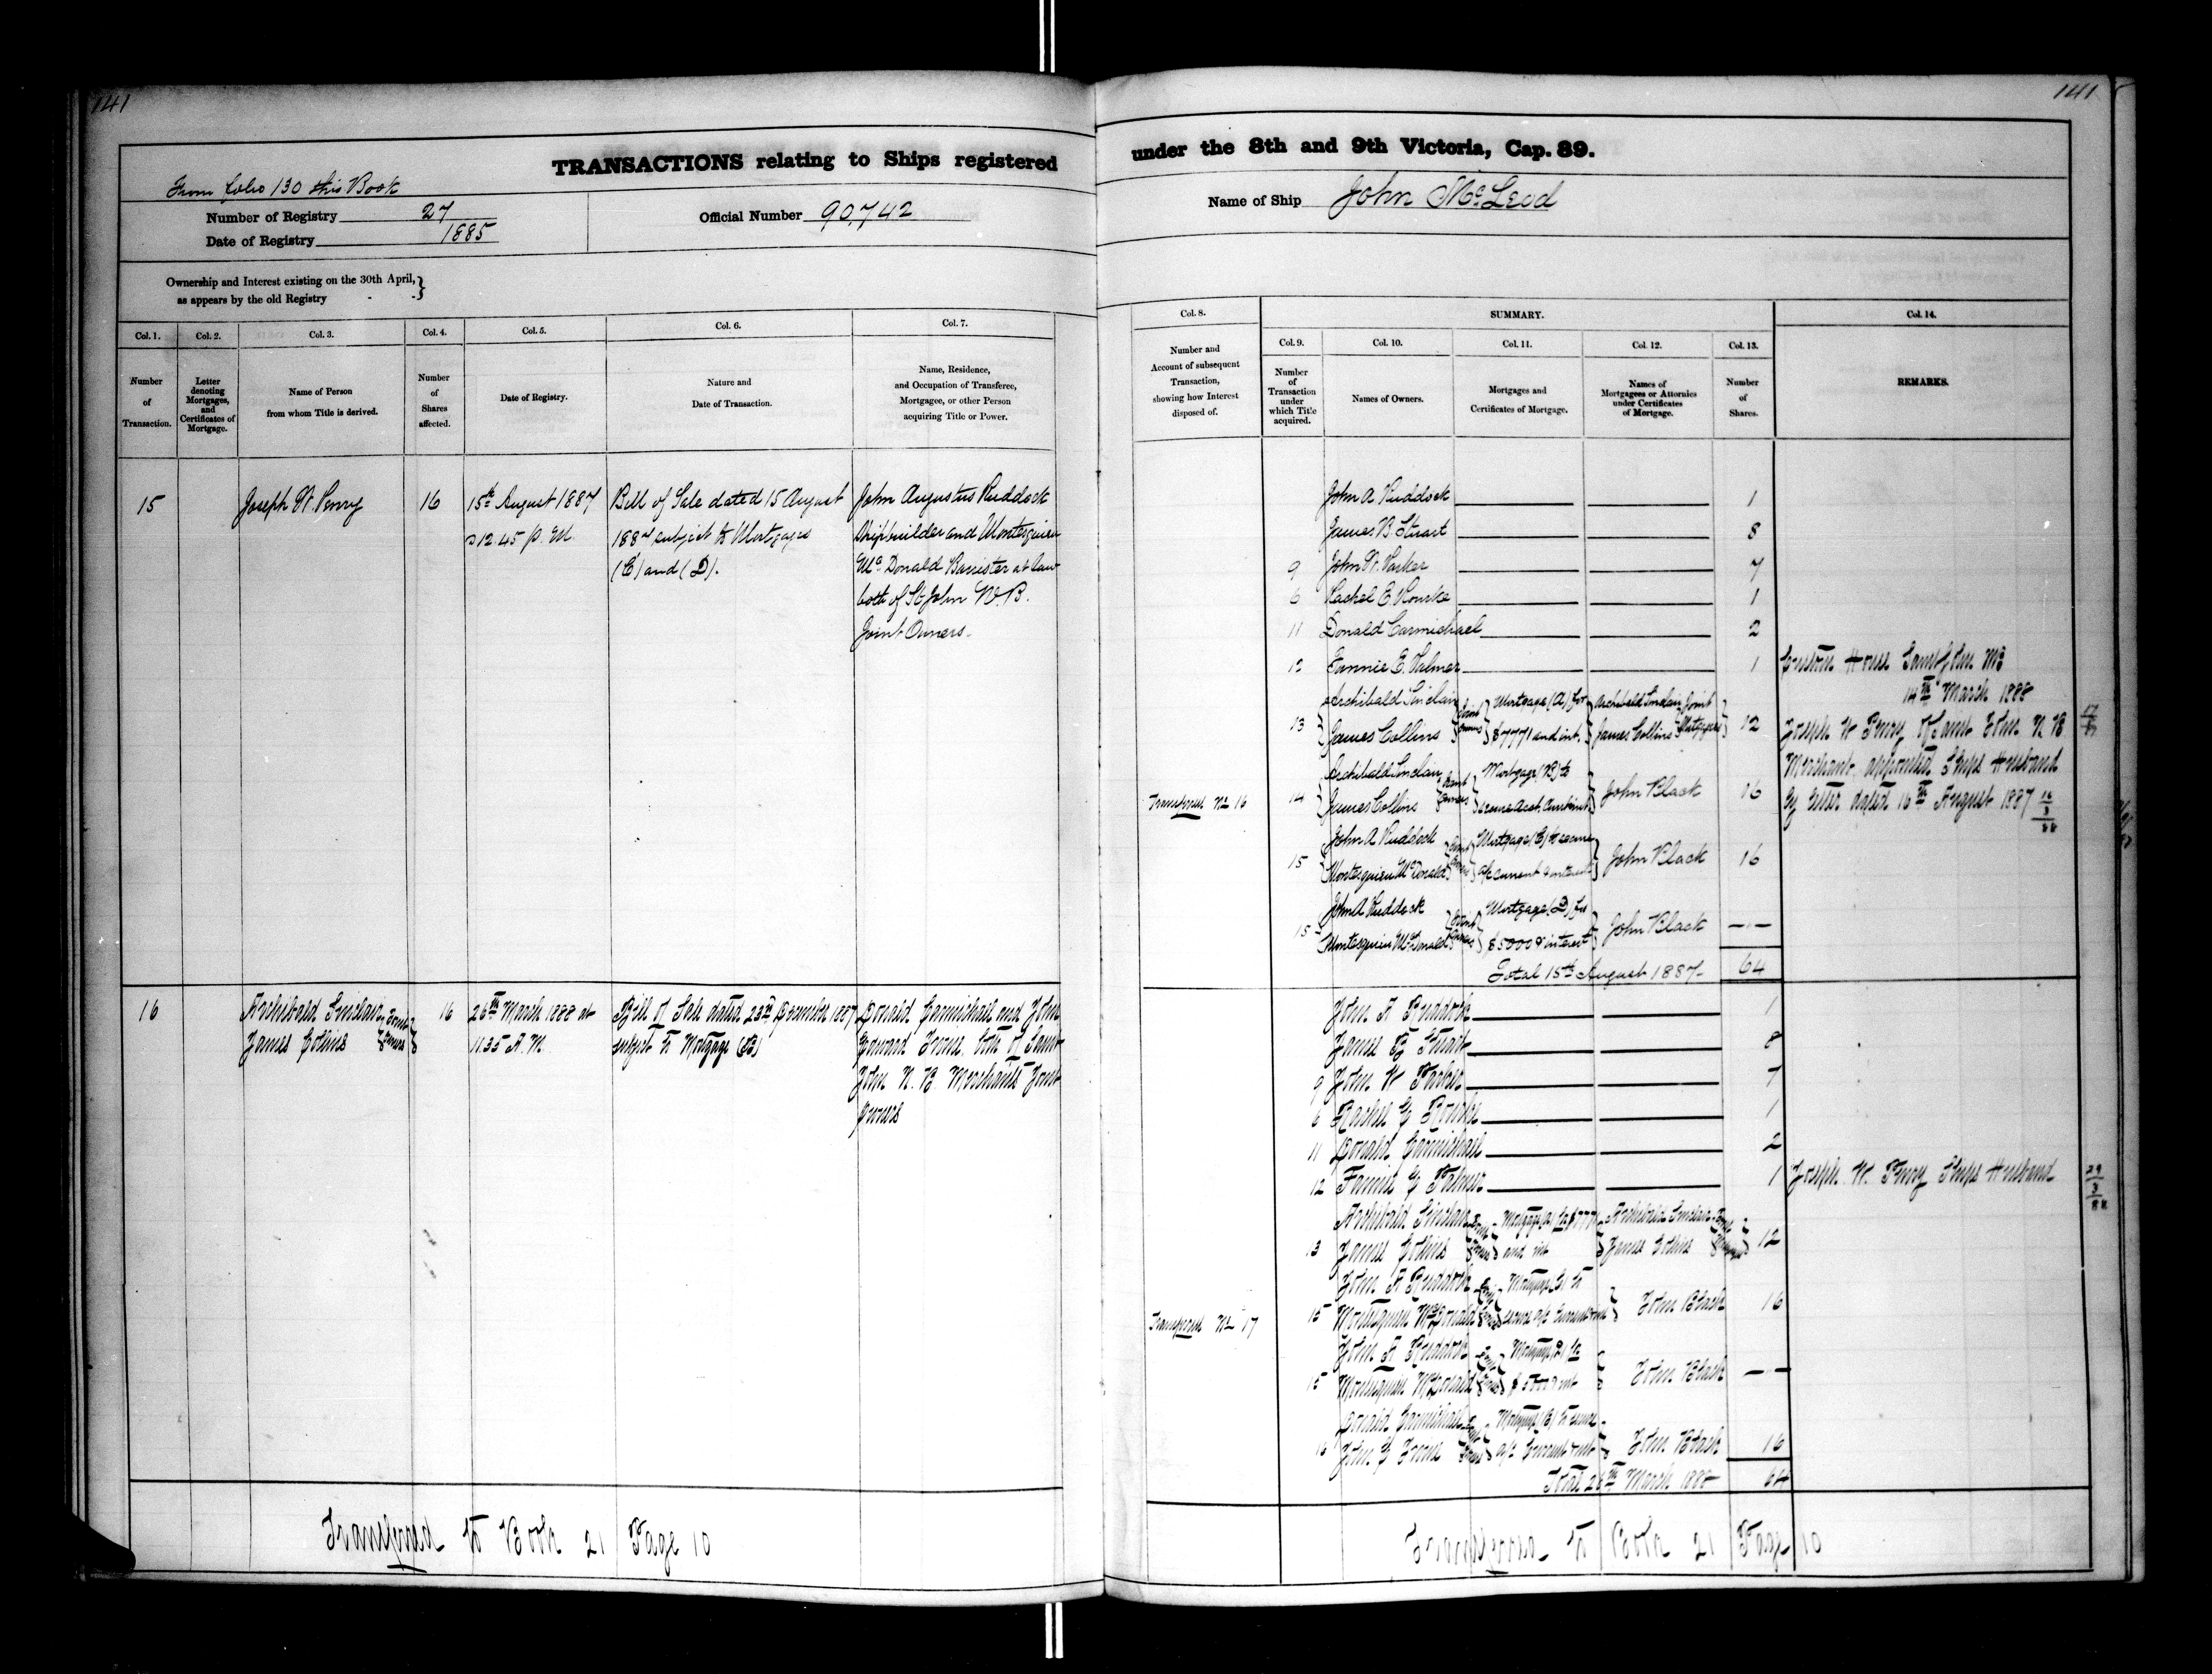 141
TRANSACTIONS relating to Ships registered
From folio 130 this Book
Number of Registry 27
Date of Registry 1885
Official Number 90,742
Ownership and Interest existing on the 30th April,}
as appears by the old Registry
Col. 1. Col. 2. Col. 3. Col. 4. Col. 5. Col. 6. Col. 7.
Number of Transaction.
Letter denoting Mortgages, and Certificates of Mortgage.
Name of Person from whom Title is derived.
Number of Shares affected.
Date of Registry.
Nature and Date of Transaction.
Name, Residence, and Occupation of Transferee, Mortgagee, or other Person acquiring Title or Power.
15
Joseph W. Penry
16
15th August 1887
12.45 p. M.
Bill of Sale dated 15 August
1887 subject to Mortgages
(C) and (D).
John Augustus Ruddock
Shipbuilder and Montesquieu
McDonald Barrister at law
both of St John N.B.
Joint Owners.
16
Archibald Sinclair
James Collins
Joint Owners
16
26th March 1888 at
11.35 A.M.
Bill of Sale dated 23rd December 1887
subject to Mortgage (B)
Donald Carmichael and John
Edward Irvine both of Saint
John N.B Merchants Joint
Owners
Transferred to Book 21 Page 10
141
under the 8th and 9th Victoria, Cap. 89.
Name of Ship John McLeod
Col. 8.
Number and Account of subsequent Transaction, showing how Interest disposed of.
SUMMARY.
Col. 9. Col. 10. Col. 11. Col. 12. Col. 13. Col. 14.
Number of Transaction under which Title acquired.
Names of Owners.
Mortgages and Certificates of Mortgage.
Names of Mortgagees or Attornies under Certificates of Mortgage.
Number of Shares.
REMARKS.
John A Ruddock 1
James B. Stuart 8
9 John W. Parker 7
6 Rachel E. Rourke 1
11 Donald Carmichael 2
12 Fannie E. Palmer 1
13 Archibald Sinclair James Collins Joint Owners Mortgage (A) for $7771 and int. Archibald Sinclair James Collins Joint Mortgagees 12
Transferred No 16
14 Archibald Sinclair James Collins Joint Owners Mortgage (B) to secure John Black 16
15 John A Ruddock Montesquieu McDonald Joint Owners Mortgage (C) to secure a/c current & interest John Black 16
15 John A Ruddock Montesquieu McDonald Joint Owners Mortgage (D) for $5000 & interest John Black
Total 15th August 1887 64
Custom House Saint John NB
14th March 1888
Joseph W Penry of Saint John N B
Merchant appointed Ships Husband
by letter dated 16th August 1887
John A Ruddock 1
James B Stuart 8
9 John W Parker 7
6 Rachel E Rourke 1
11 Donald Carmichael 2
12 Fannie E Palmer 1
Joseph W. Penry Ships Husband
29 3 88
13 Archibald Sinclair James Collins Joint Owners Mortgage (A) for $7771 and int Archibald Sinclair James Collins Joint Mortgagees 12
Transferred No 17
15 John A Ruddock Montesquieu McDonald Joint Owners Mortgage (C) to secure a/c Current & int John Black 16
15 John A Ruddock Montesquieu McDonald Joint Owners Mortgage (D) for $5000 & int John Black
16 Donald Carmichael John E Irvine Joint Owners Mortgage (B) to secure a/c Current & int John Black 16
Total 26th March 1888 64
Transferred to Book 21 Page 10